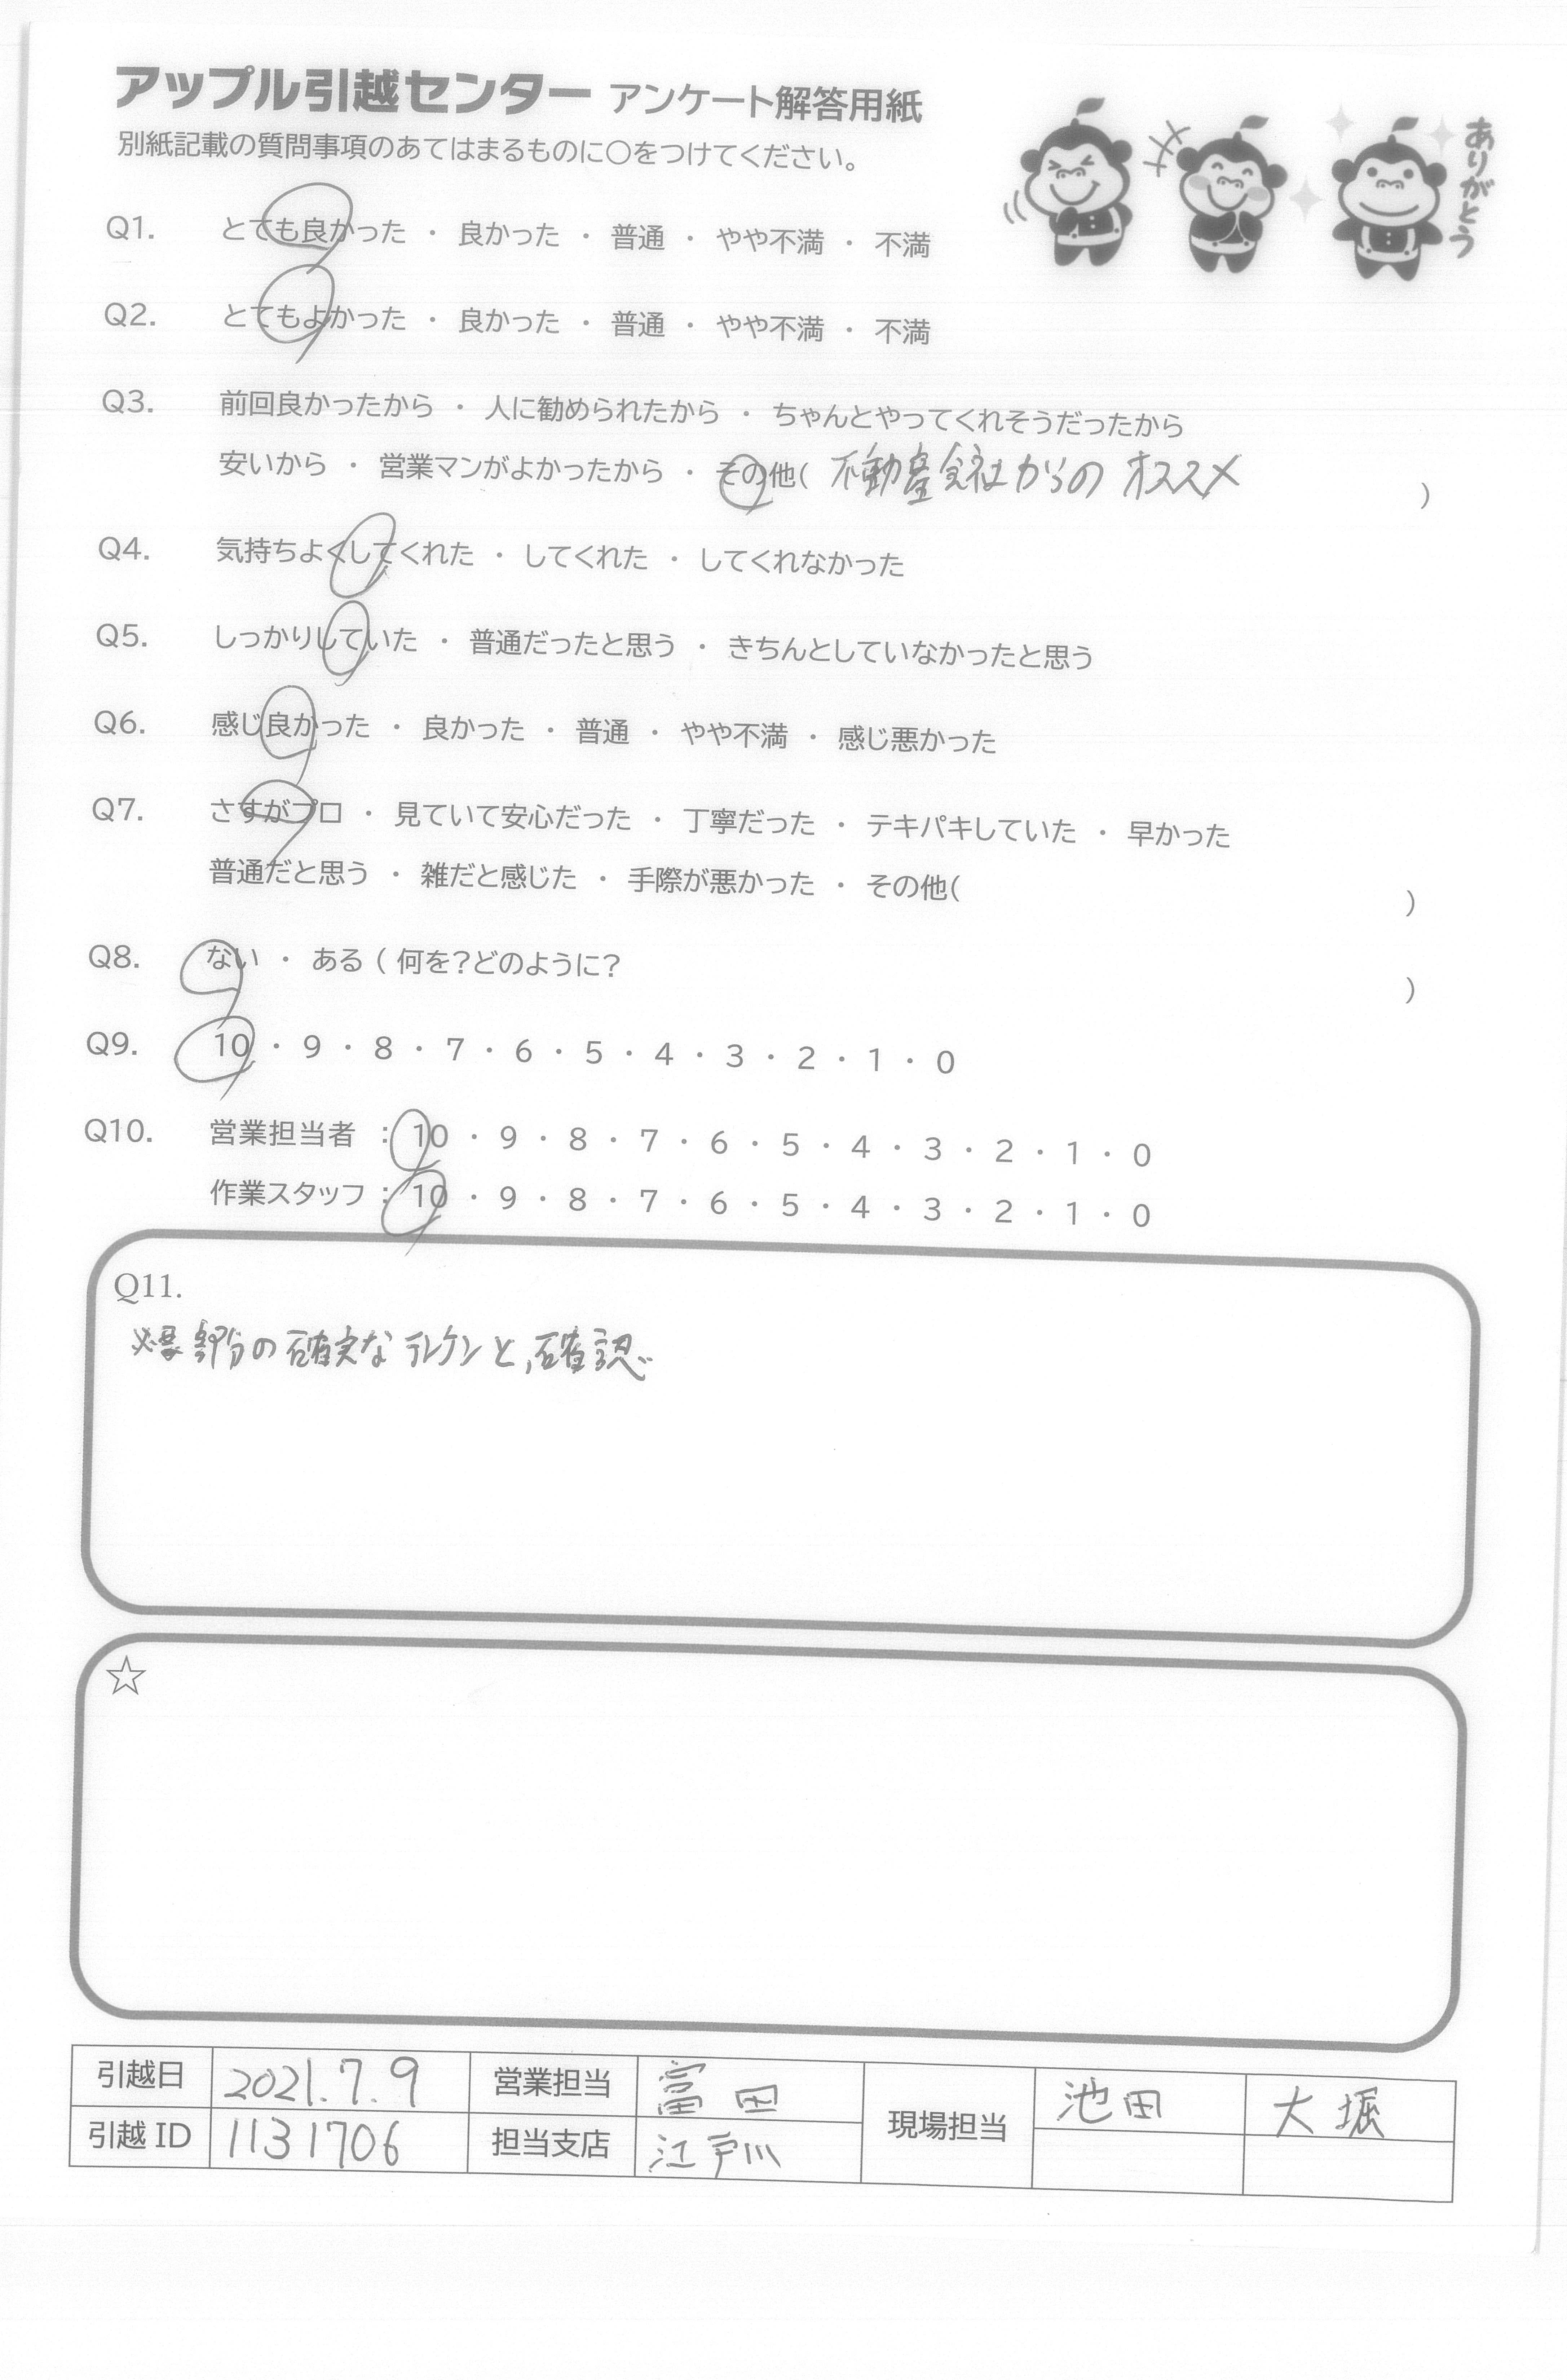 アップル引越センター アンケート解答用紙
別紙記載の質問事項のあてはまるものに〇をつけてください。
ありがとう
Q1. とても良かった ・ 良かった ・ 普通 ・ やや不満 ・ 不満
Q2. とてもよかった ・ 良かった ・ 普通 ・ やや不満 ・ 不満
Q3. 前回良かったから ・ 人に勧められたから ・ ちゃんとやってくれそうだったから
安いから ・ 営業マンがよかったから ・ その他( 不動産会社からの オススメ )
Q4. 気持ちよくしてくれた ・ してくれた ・ してくれなかった
Q5. しっかりしていた ・ 普通だったと思う ・ きちんとしていなかったと思う
Q6. 感じ良かった ・ 良かった ・ 普通 ・ やや不満 ・ 感じ悪かった
Q7. さすがプロ ・ 見ていて安心だった ・ 丁寧だった ・ テキパキしていた ・ 早かった
普通だと思う ・ 雑だと感じた ・ 手際が悪かった ・ その他( )
Q8. ない ・ ある ( 何を?どのように? )
Q9. 10 ・ 9 ・ 8 ・ 7 ・ 6 ・ 5 ・ 4 ・ 3 ・ 2 ・ 1 ・ 0
Q10. 営業担当者 : 10 ・ 9 ・ 8 ・ 7 ・ 6 ・ 5 ・ 4 ・ 3 ・ 2 ・ 1 ・ 0
作業スタッフ : 10 ・ 9 ・ 8 ・ 7 ・ 6 ・ 5 ・ 4 ・ 3 ・ 2 ・ 1 ・ 0
Q11.
部分の確実な と、確認
☆
引越日 2021.7.9 営業担当 富田 現場担当 池田 大堀
引越 ID 1131706 担当支店 江戸川